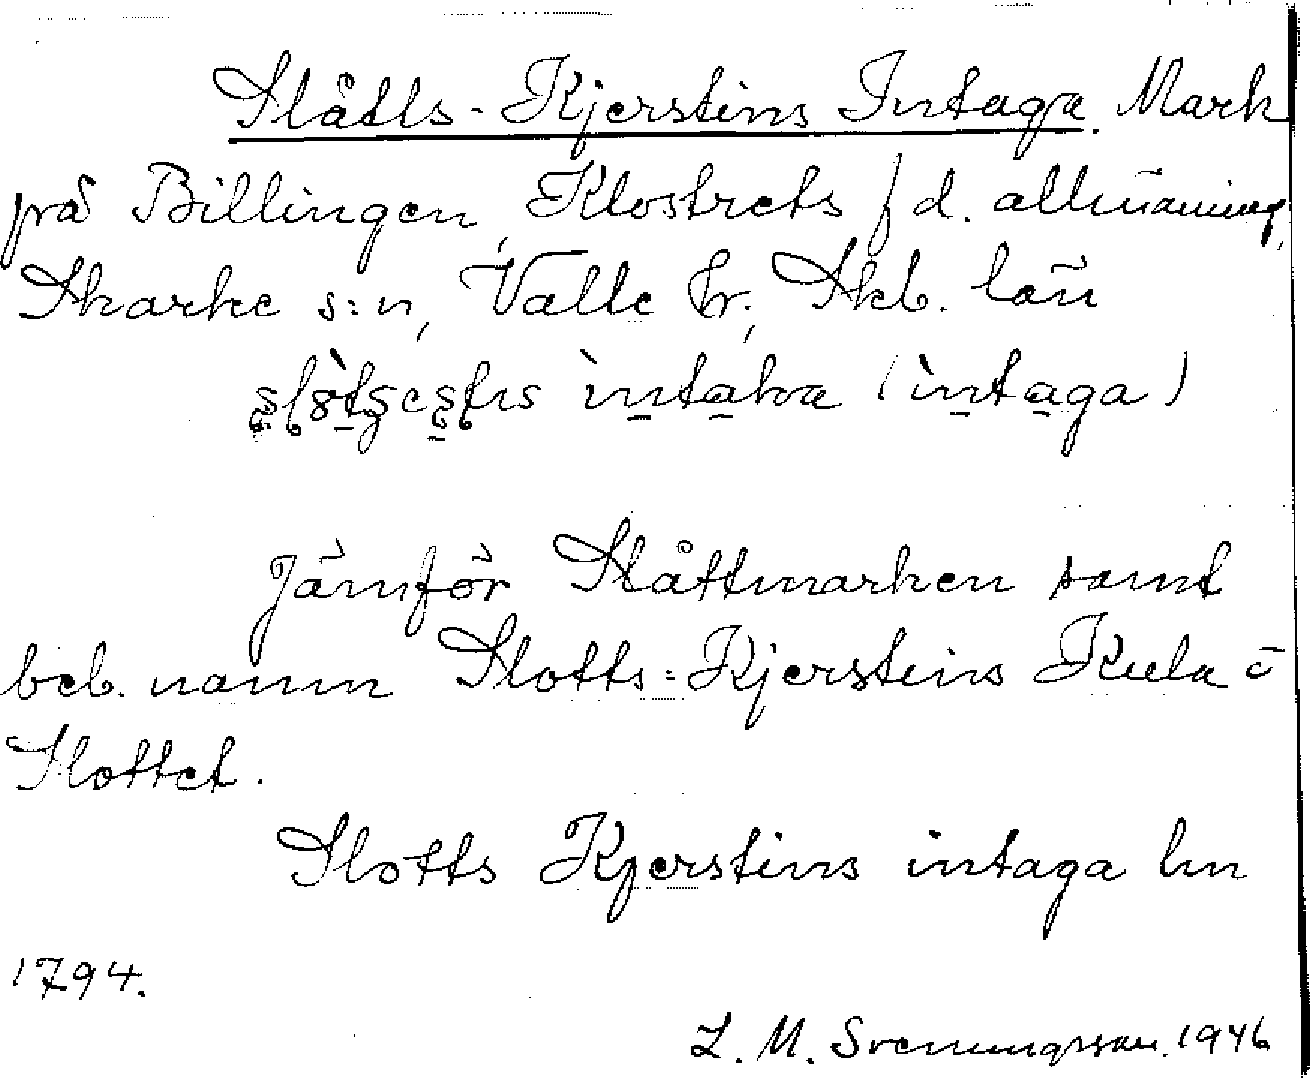 Slåtts-Kjerstins Intaga. Mark
på Billingen, Klostrets f d. allmänning,
Skarke s:n, Valle hr., Skb. län
ìntaka (ìntaga)
Jämför Slåttmarken samt
beb. namn Slotts-Kjerstins Kula o
Slottet.
Slotts Kjerstins intaga lm
1794.
L. M. Svenungsson. 1946